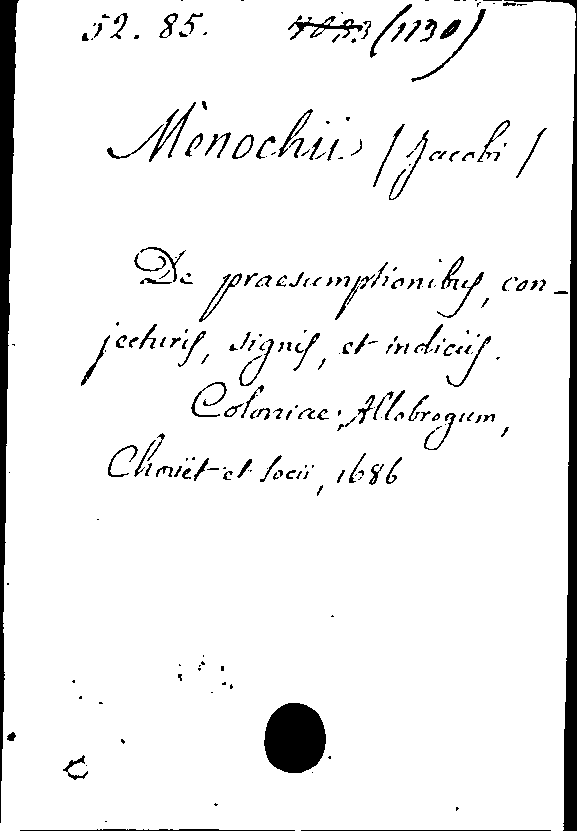 52. 85. (1130)
Menochii (Jacobi)
De praesumptionibus, con-
jecturis, signis, et indiciis.
Coloniae-Allobrogum,
Chouët et Socii, 1686